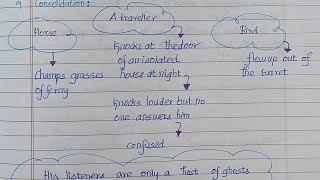 9 Consolidation:
Horse
A traveller
Bird
Knocks at the door
of an isolated
house at night
flew up out of
the turret
Champs grasses
of ferny
Knocks louder but no
one answers him
confused
His listeners are only a host of ghosts